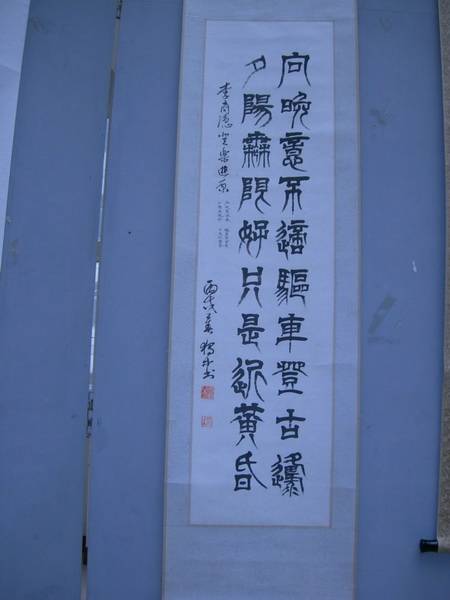 向晚意不適驅車登古邍
夕陽無限好只是近黃昏
李商隱登樂遊原
丙戌春
書